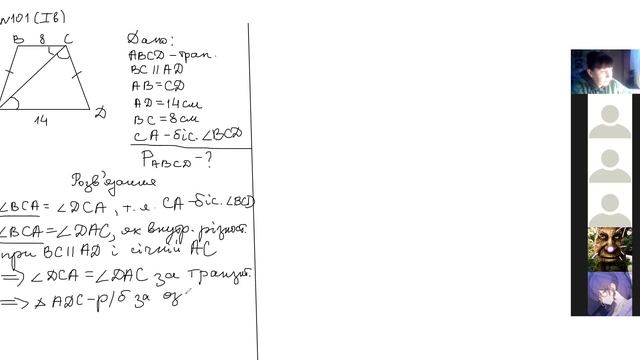 №101 (Iв)
B 8 C
D
14
Дано:
ABCD - трап.
BC || AD
AB = CD
AD = 14 см
BC = 8 см
CA - біс. ∠BCD
P ABCD - ?
Розв'язання
∠BCA = ∠DCA, т. я. CA - біс. ∠BCD
∠BCA = ∠DAC, як внутр. різност.
при BC || AD і січній AC
⇒ ∠DCA = ∠DAC за транзит.
⇒ △ ADC - р/б за оз